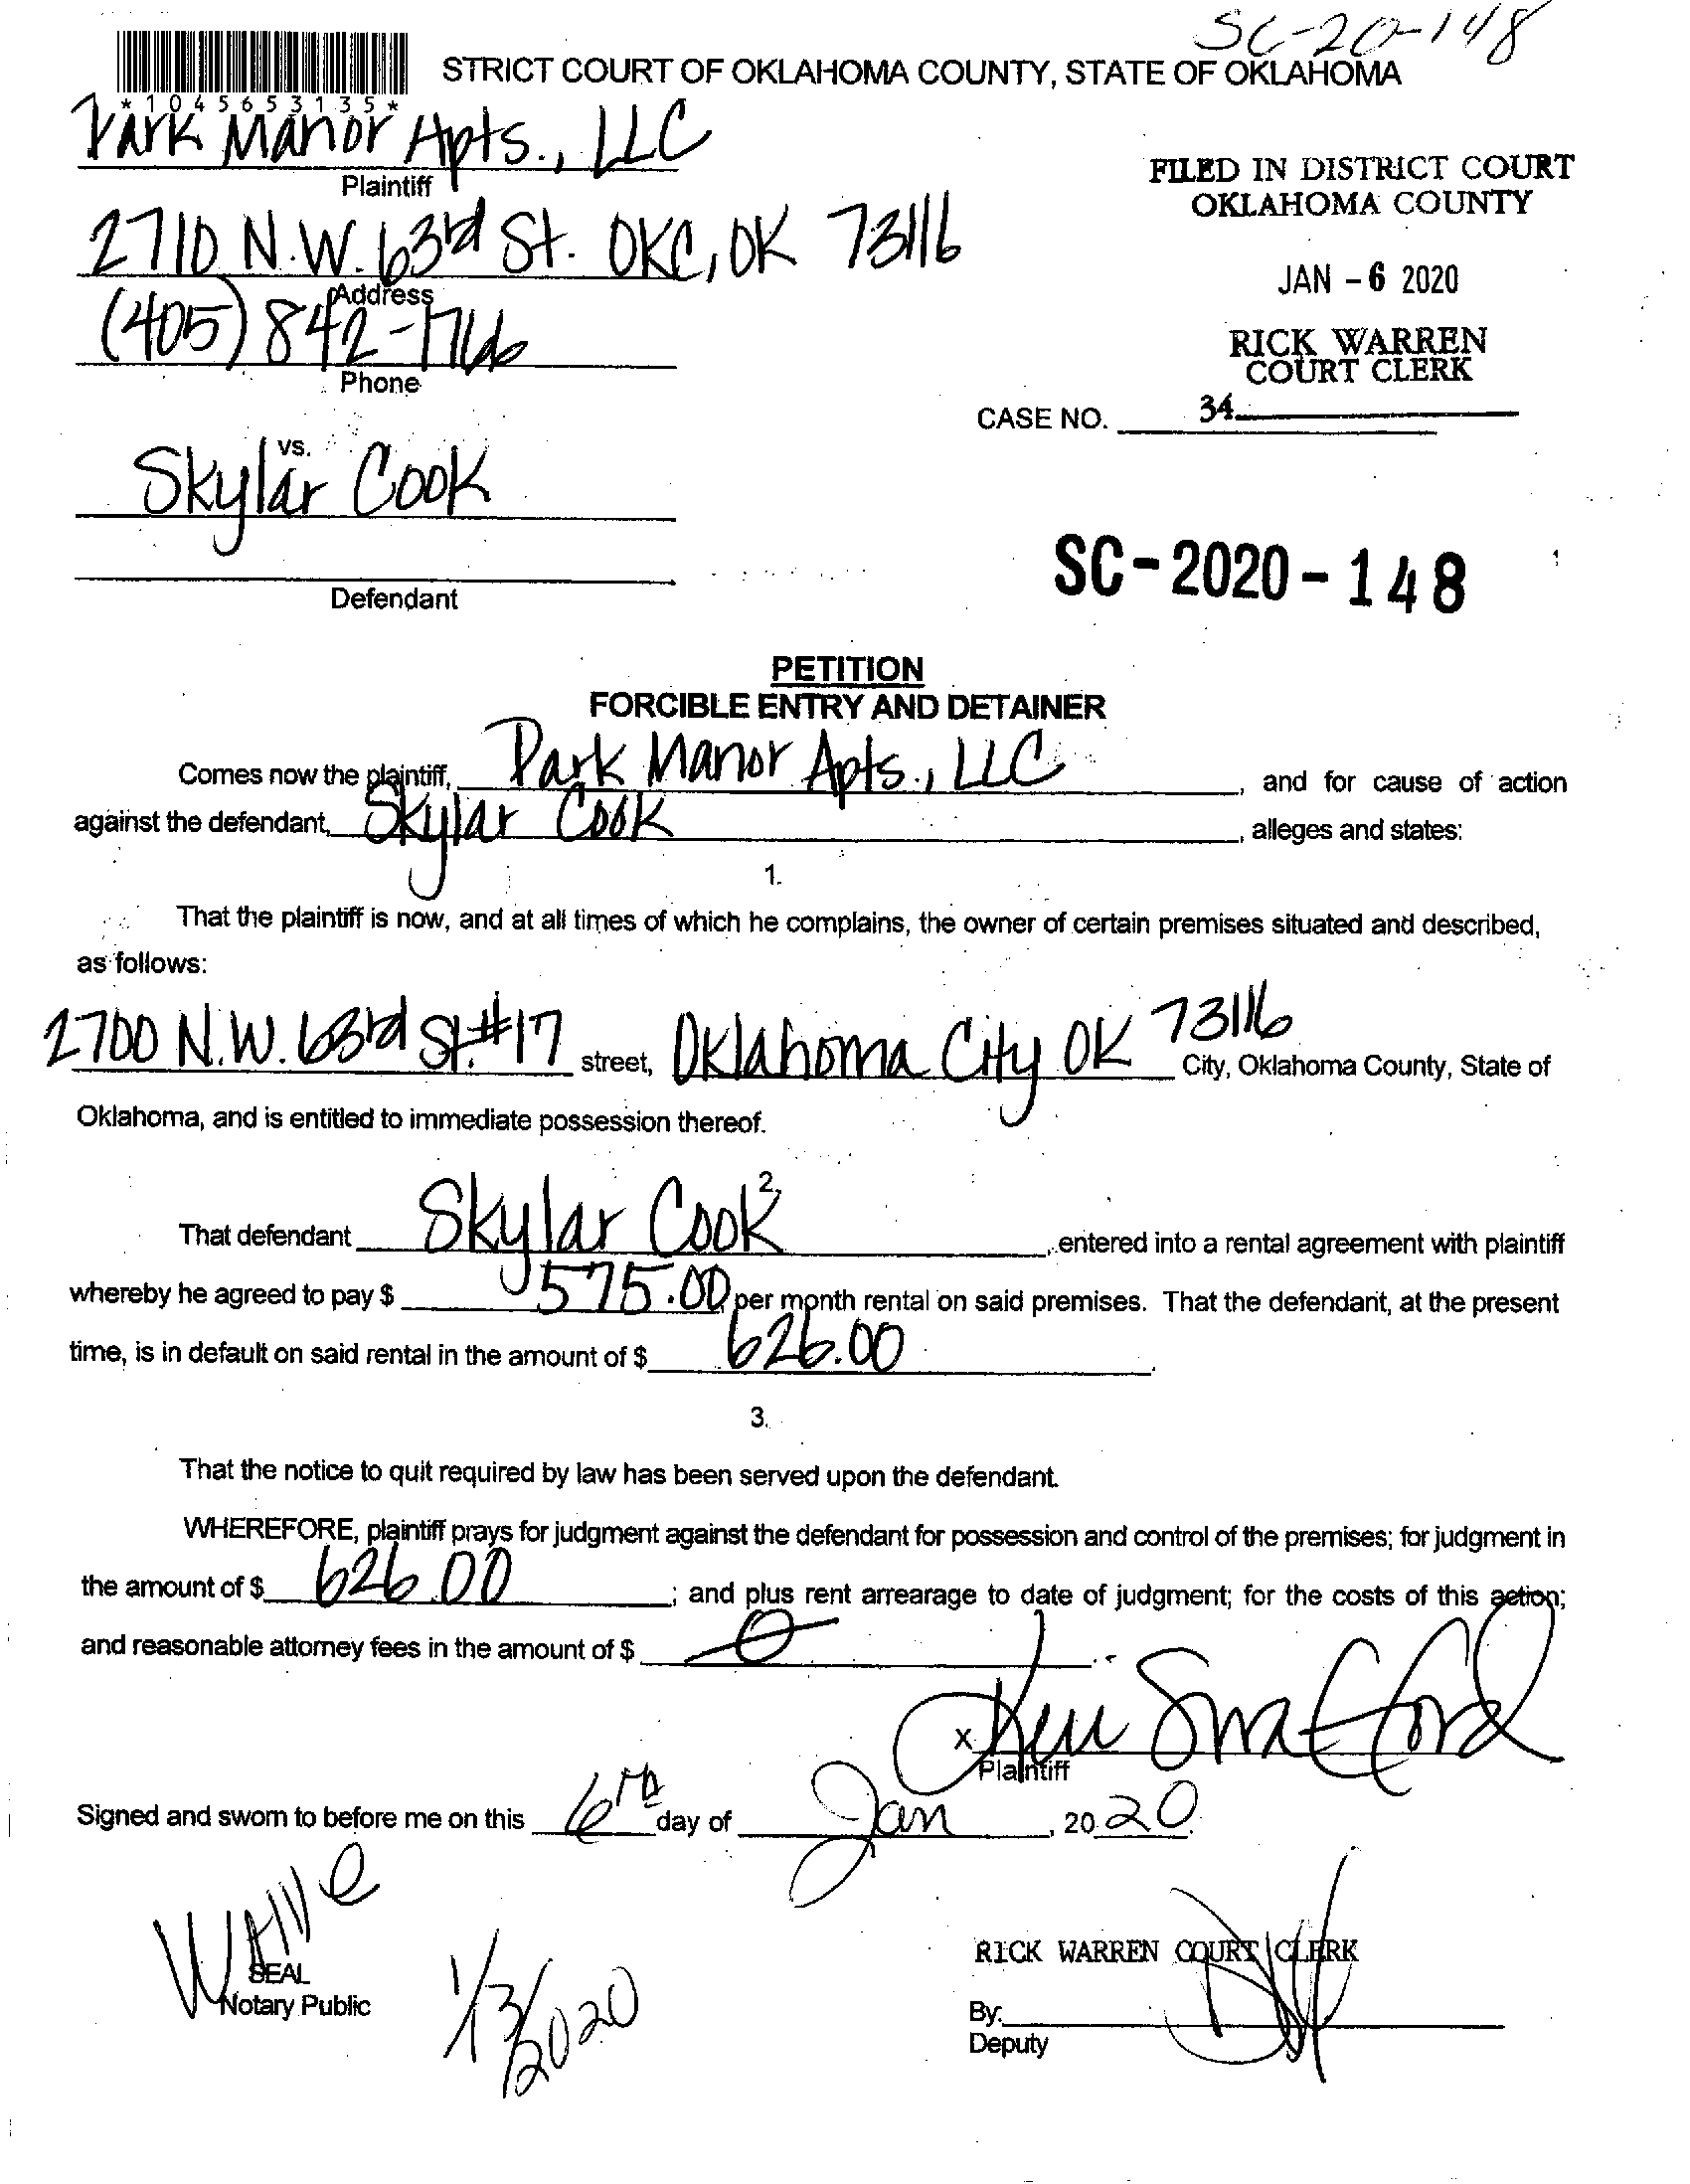 SC-20-148
STRICT COURT OF OKLAHOMA COUNTY, STATE OF OKLAHOMA
*1045653135*
Park Manor Apts., LLC
Plaintiff
FILED IN DISTRICT COURT
OKLAHOMA COUNTY
2710 N.W. 63rd St. OKC, OK 73116
Address
JAN -6 2020
(405) 842-1766
Phone
RICK WARREN
COURT CLERK
CASE NO. 34
vs.
Skylar Cook
Defendant
SC-2020-148
PETITION
FORCIBLE ENTRY AND DETAINER
Comes now the plaintiff, Park Manor Apts., LLC, and for cause of action
against the defendant, Skylar Cook, alleges and states:
1.
That the plaintiff is now, and at all times of which he complains, the owner of certain premises situated and described,
as follows:
2700 N.W. 63rd St. #17 street, Oklahoma City OK 73116 City, Oklahoma County, State of
Oklahoma, and is entitled to immediate possession thereof.
2.
That defendant Skylar Cook, entered into a rental agreement with plaintiff
whereby he agreed to pay $ 575.00, per month rental on said premises. That the defendant, at the present
time, is in default on said rental in the amount of $ 626.00.
3.
That the notice to quit required by law has been served upon the defendant.
WHEREFORE, plaintiff prays for judgment against the defendant for possession and control of the premises; for judgment in
the amount of $ 626.00; and plus rent arrearage to date of judgment; for the costs of this action;
and reasonable attorney fees in the amount of $ 0.
x
Plaintiff
Signed and sworn to before me on this 6th day of Jan, 2020
Waive
SEAL
Notary Public
1/13/2020
RICK WARREN COURT CLERK
By:
Deputy